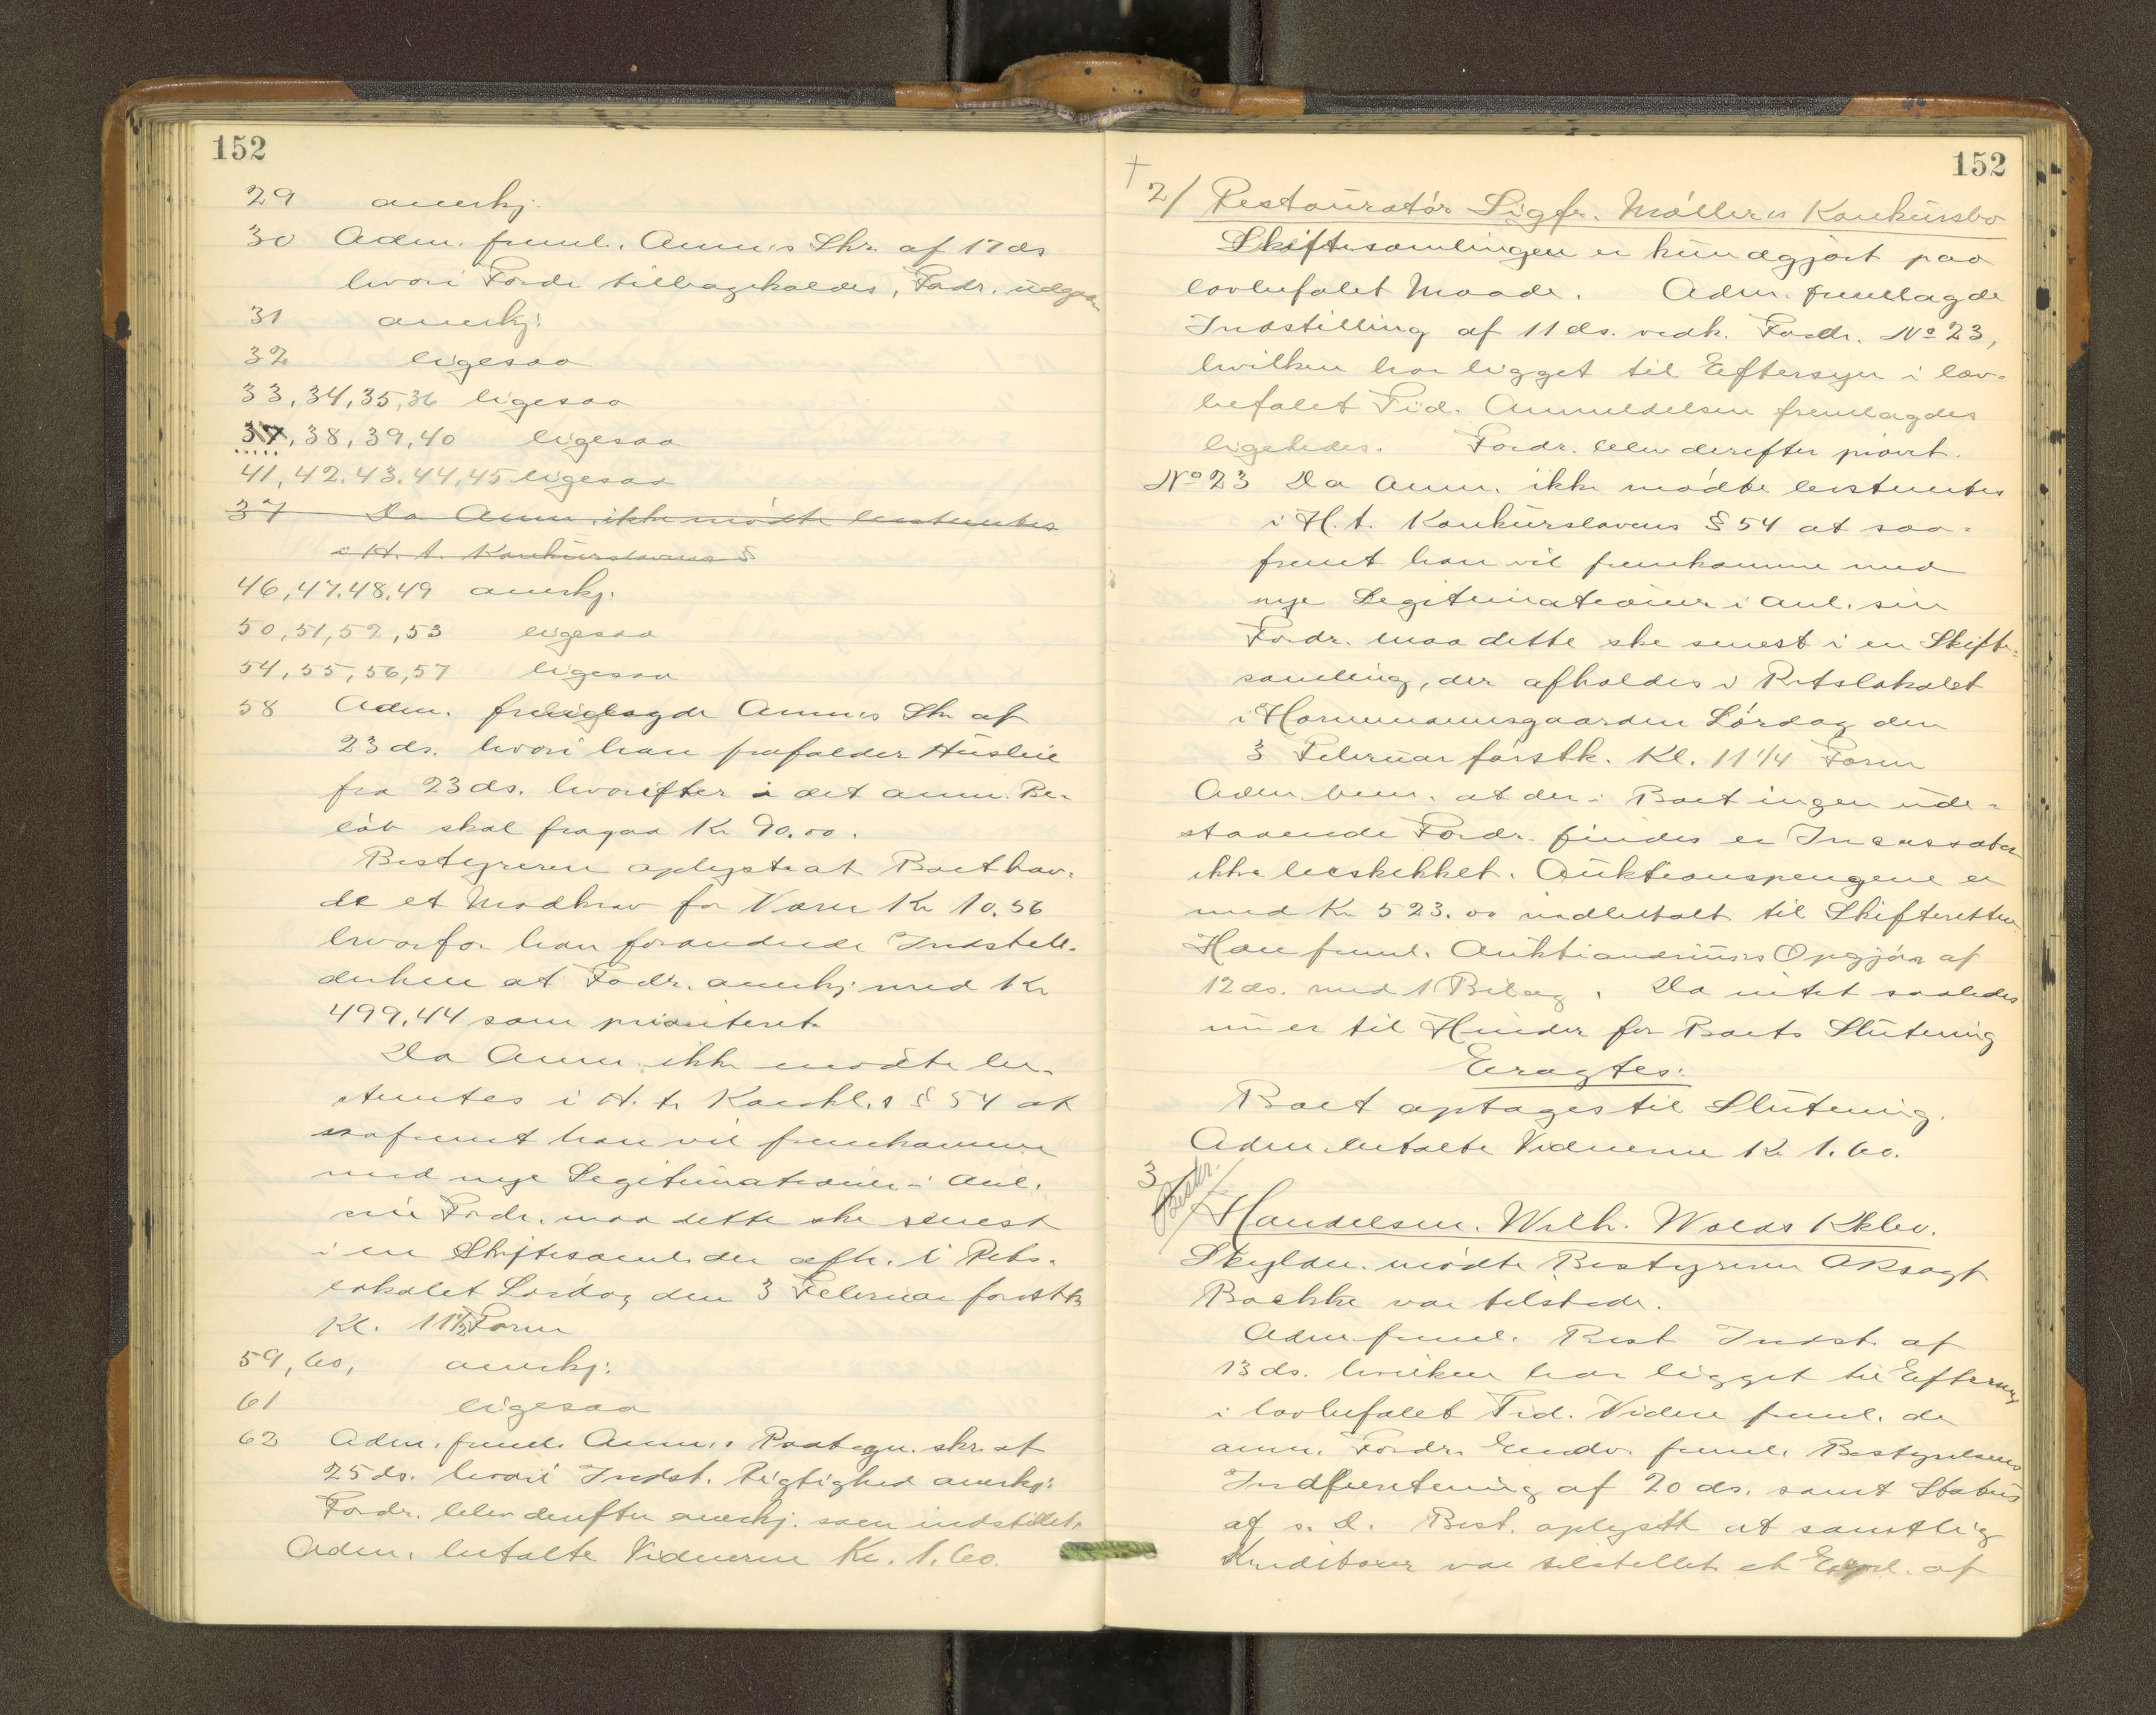 152
29 anerkj.
30 Adm. freml. Anm.s Skr. af 17 ds
hvori Fordr tilbagekaldes, Fodr. udgaar
31 anerkj:
32 ligesaa
33, 34, 35, 36 ligesaa
37, 38, 39, 40 ligesaa
41, 42. 43. 44, 45 ligesaa
37 Da Anm. ikke mødte bestemtes
i H. t. Konkurslovens §
46, 47. 48, 49 anerkj.
50, 51, 52, 53 ligesaa
54, 55, 56, 57 ligesaa
58 Adm. fremlagde Anm.s Skr af
23 ds. hvori han frafalder Husleie
fra 23 ds. hvorefter i det anm. Be-
løb skal fragaa Kr 90.00.
Bestyreren oplyste at Boet hav-
de et Modkrav for Varer Kr 10.56
hvorfor han forandrede Indstill.
derhen at Fodr. anerkj med Kr
499,44 som prioriteret.
Da Anm. ikke mødte be-
stemtes i H. t. Konkl.s § 54 at
saafremt han vil fremkomme
med nye Legitimationer i Anl.
sin Fodr. maa dette ske senest
i en Skiftesaml. der afh. i Rets-
lokalet Lørdag den 3 Februar førstk
Kl. 11 1/2 Form
59, 60, anerkj:
61 ligesaa
62 Adm. freml. Anm.s Paategn. skr. af
25 ds. hvori Indst. Rigtighed anerkj:
Fordr. blev derefter anerkj. som indstillet.
Adm. betalte Vidnerne Kr. 1.60.
152
2/ Restauratør Sigfr. Møllers Konkursbo
Skiftesamlingen er kundgjort paa
lovbefalet Maade. Adm. fremlagde
Indstilling af 11 ds. vedk. Fordr. No 23,
hvilken har ligget til Eftersyn i lov-
befalet Tid. Anmeldelsen fremlagdes
ligeledes. Fordr. blev derefter prøvet.
No 23 Da Anm. ikke mødte bestemtes
i H. t. Konkurslovens § 54 at saa-
fremt han vil fremkomme med
nye Legitimationer i Anl. sin
Fordr. maa dette ske senest i en Skifte-
samling, der afholdes i Retslokalet
i Hornemansgaarden Lørdag den
3 Februar førstk. Kl. 11 1/4 Form
Adm bem. at der i Boet ingen ude-
staaende Fordr. findes er Incassator
ikke beskikket. Auktionspengene er
med Kr 523.00 indbetalt til Skifteretten
Han freml. Auktionarius Opgjør af
12 ds. med 1 Bilag. Da intet saaledes
nu er til Hinder for Boets Slutning
Eragtes:
Boet optages til Slutning.
Adm. betalte Vidnerne Kr 1.60.
3/ Beskr.
Handelsm. Wilh. Wolds Kkbo.
Skyldn. mødte Bestyreren ORsagf
Baekke var tilstede.
Adm freml. Best Indst. af
13 ds. hvilken har ligget til Eftersyn
i lovbefalet Tid. Videre freml. de
anm. Fordr. Endv. freml. Bestyrelsens
Indberetning af 20 ds. samt Status
af s. D. Best. oplyste at samtlig
Kreditorer var tilstillet et Expl. af